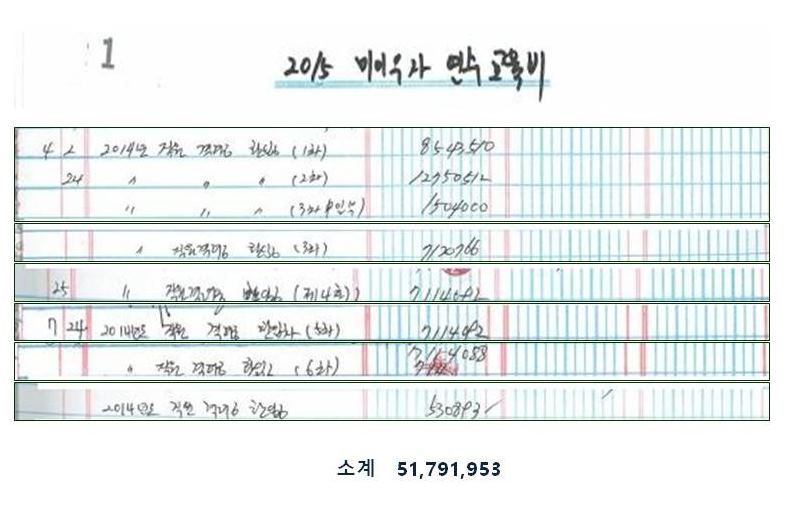 1
2015 연수 교육비
4 2 2014년 직원 격려금 (1차) 8543510
24 〃 〃 〃 (2차) 12750512
〃 〃 〃 (3차 일부) 1504000
〃 직원격려금 (3차) 7120766
25 〃 직원격려금 (제4회) 7114092
7 24 2014년도 직원 격려금 (5차) 7114092
〃 직원 격려금 (6차) 7114088
2014년도 직원 격려금 530893
소계 51,791,953